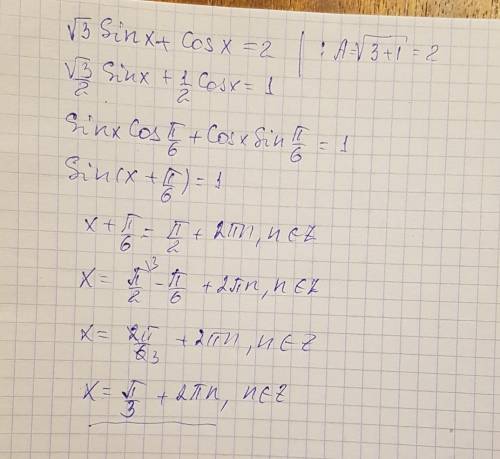 √3 Sinx + Cosx = 2 | : A = √(3+1) = 2
√3/2 Sinx + 1/2 Cosx = 1
Sinx Cos π/6 + Cosx Sin π/6 = 1
Sin(x + π/6) = 1
x + π/6 = π/2 + 2πn, n ∈ Z
x = π/2 ³ - π/6 + 2πn, n ∈ Z
x = 2π/6 3 + 2πn, n ∈ Z
x = π/3 + 2πn, n ∈ Z